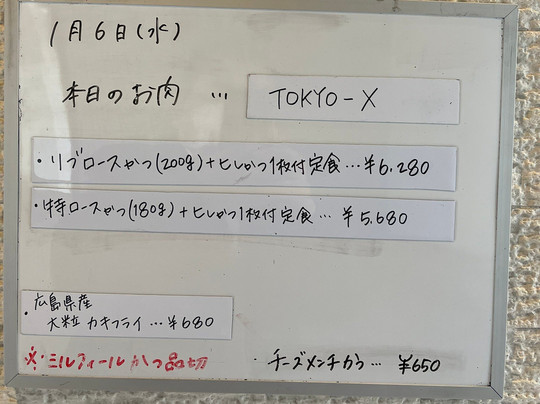 1月6日(水)
本日のお肉 … TOKYO-X
・リブロースかつ(200g)+ヒレかつ1枚付定食…¥6,280
・特ロースかつ(180g)+ヒレかつ1枚付定食…¥5,680
・広島県産
大粒カキフライ…¥680
※・ミルフィールかつ品切
・チーズメンチかつ…¥650